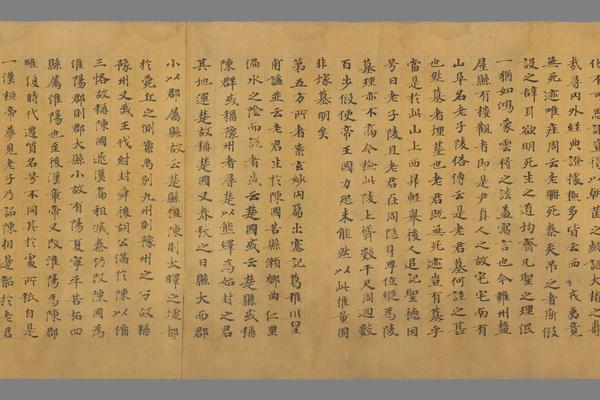 化不可思議豈得以朝菌之數語大椿之壽
哉尋內外經典證據極多皆云西我勇竟
無死迹唯莊周云老聃死秦失弔之者斯假
設之辞耳欲明死生之道均齊凡聖之理泯
一猶如鴻蒙雲將之法盡寓言也今雍州盩
厔縣有樓觀者即是尹真人之故宅宅南有
山阜名老子陵俗傳云是老君墓何誣之甚
也然墓者埋墓也老君既無死迹豈有墓乎
當是於此山上西昇輕舉後人追記聖德因
号曰老子陵且老君在周隱身卑位縱為陵
墓理亦不高今檢此陵上濟數千尺周迴數
百步假使帝王國力恐未能然以此推量固
非塚墓明矣
第五方所者案玄妙內篇出塞記葛稚川皇
甫謐並云老君生於陳國苦縣瀨鄉曲仁里
渦水之陰而說者或云楚國或云楚縣或稱
陳群或稱豫州者尋楚以熊繹為始封之君
其地運楚故稱楚國又春秋之日縣大而郡
小以郡屬縣故云楚縣但陳則太皡之墟都
於宛丘之側案禹別九州則豫州之分故稱
豫州又武王代紂封舜後胡公滿於陳以備
三恪故稱陳國逮漢高祖滅秦仍改陳國為
淮陽郡則大縣小故有陽夏寧平苦拓四
縣屬淮陽也至後漢章帝又改淮陽為陳郡
雖復時代遷貿名号不同其於處所秖自是
一漢桓帝夢見老子乃詔陳相邊韶於老君